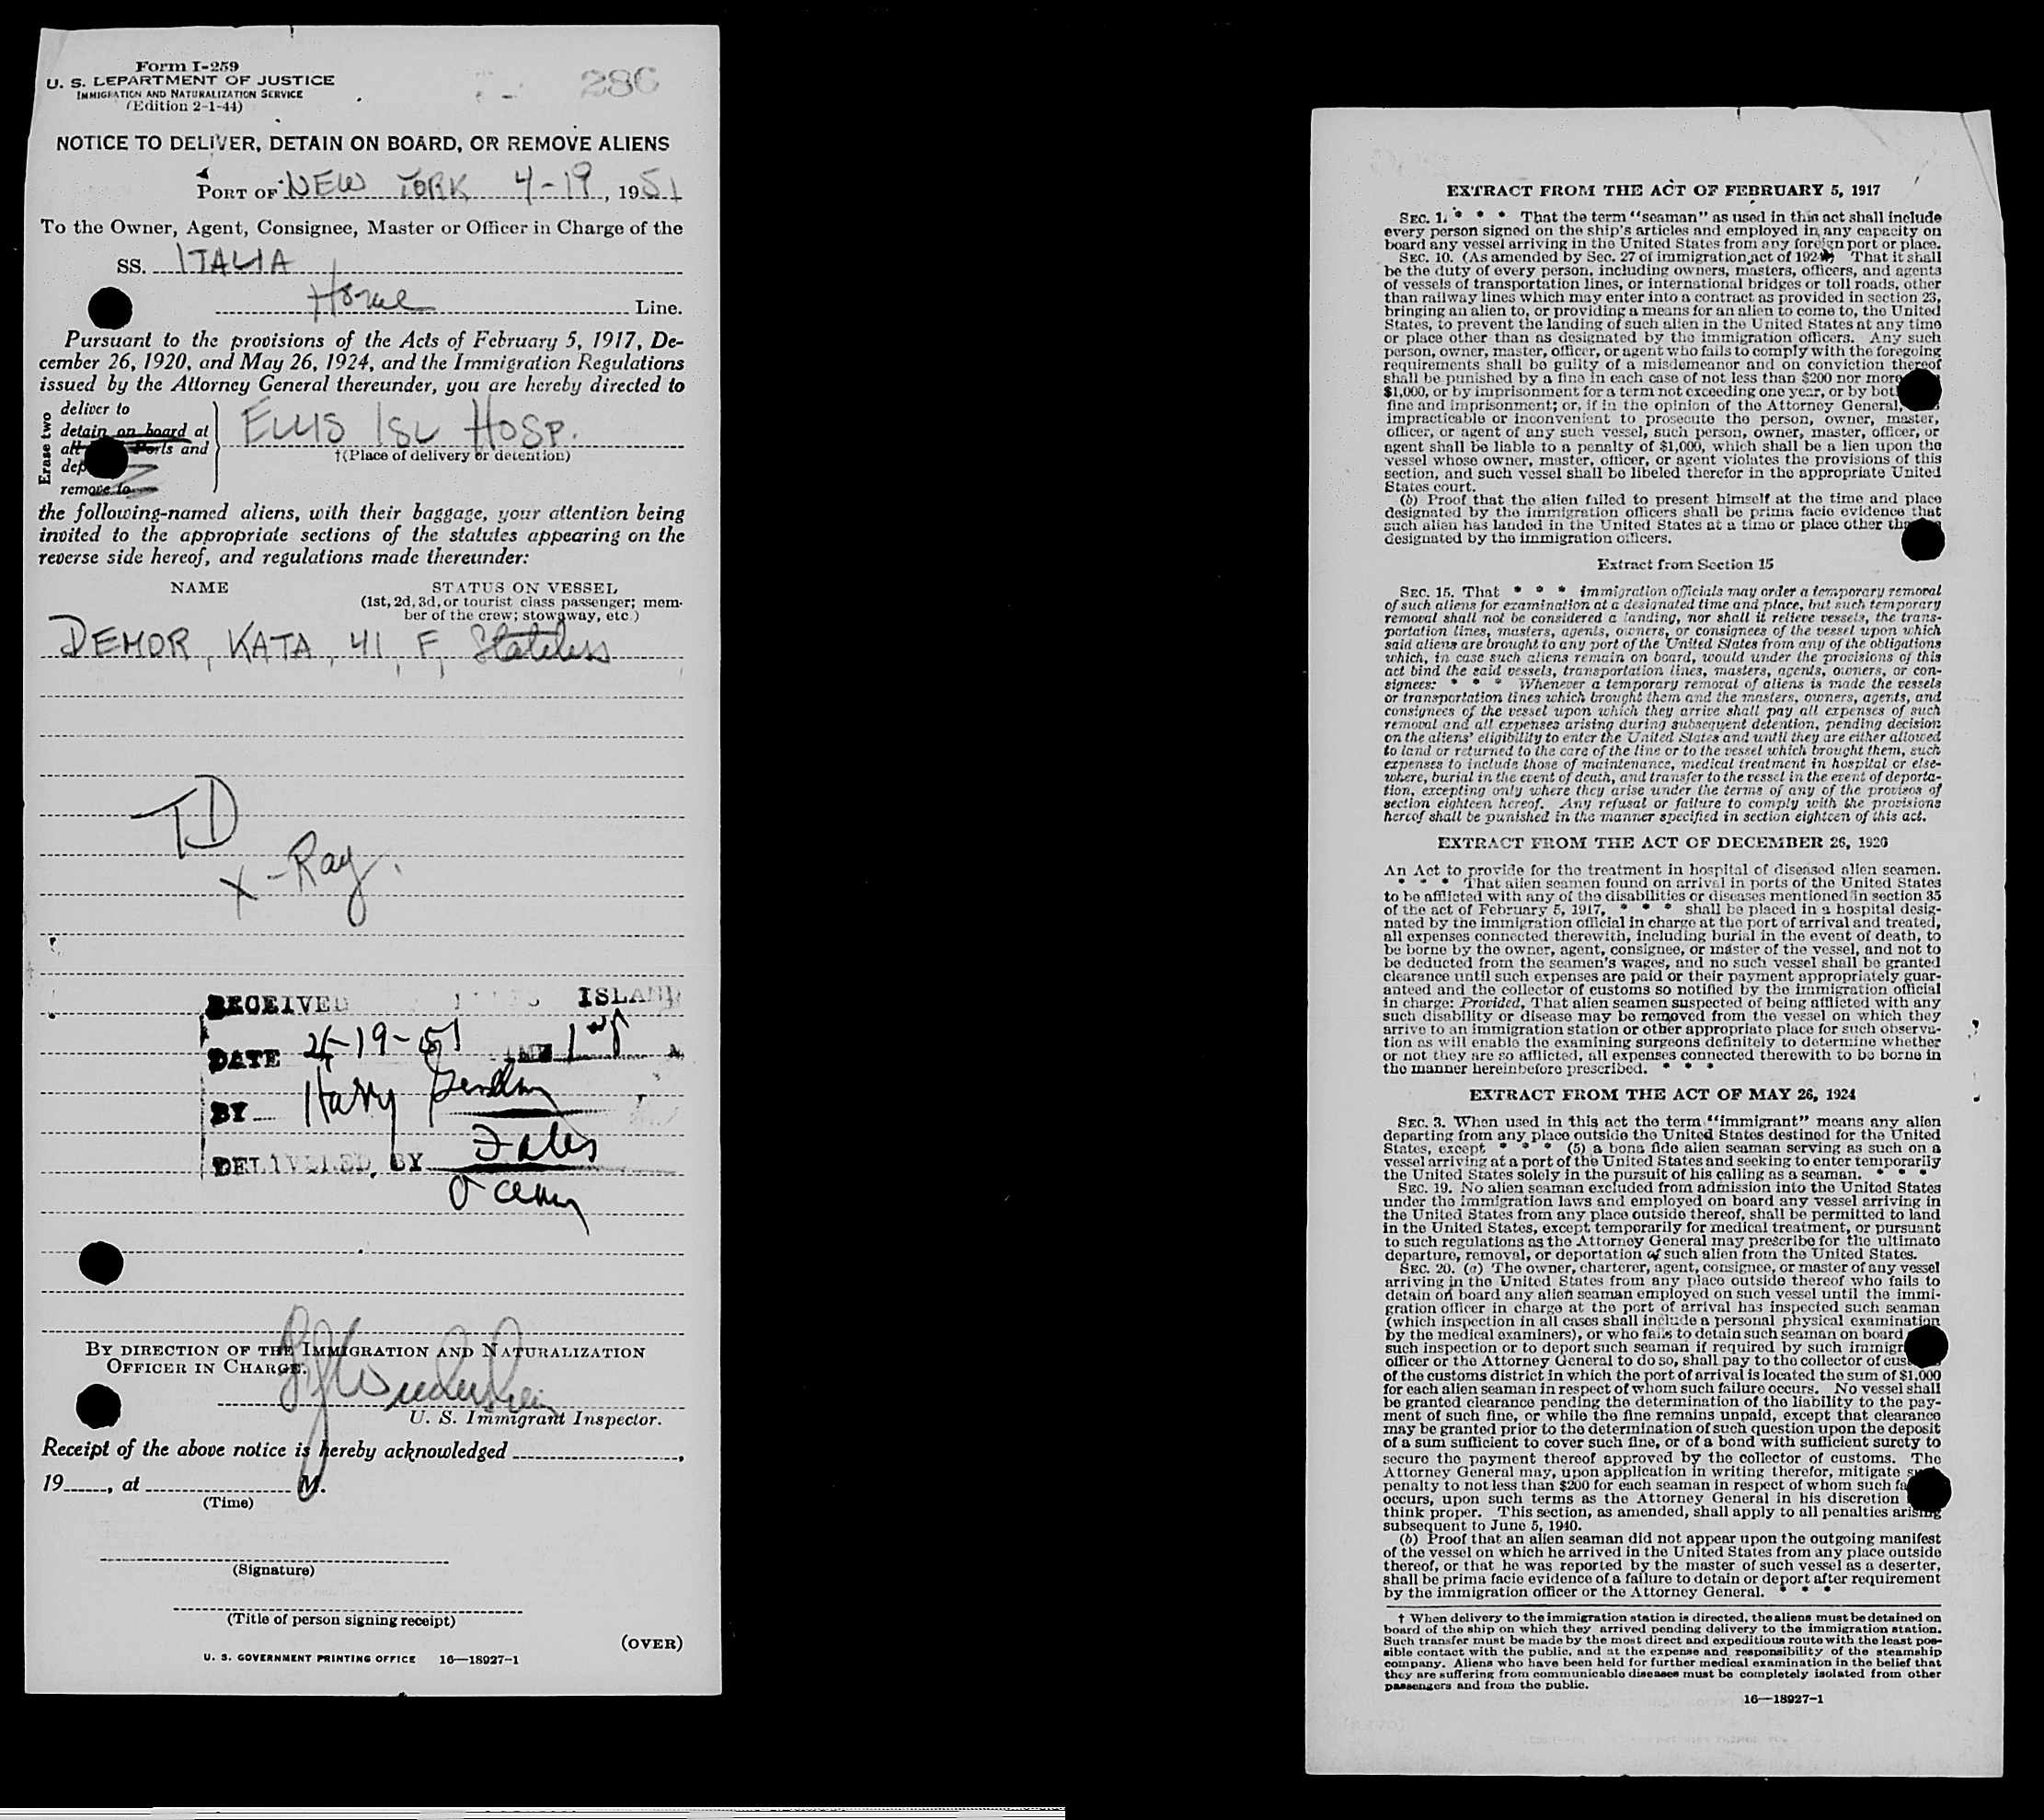 Form I-259
U. S. DEPARTMENT OF JUSTICE
IMMIGRATION AND NATURALIZATION SERVICE
(Edition 2-1-44)
286
NOTICE TO DELIVER, DETAIN ON BOARD, OR REMOVE ALIENS
PORT OF NEW YORK 4-19, 1951
To the Owner, Agent, Consignee, Master or Officer in Charge of the
SS. ITALIA
Home Line.
Pursuant to the provisions of the Acts of February 5, 1917, De-
cember 26, 1920, and May 26, 1924, and the Immigration Regulations
issued by the Attorney General thereunder, you are hereby directed to
Erase two
deliver to
detain on board at
all Ports and
dep
remove to
ELLIS ISL HOSP.
†(Place of delivery or detention)
the following-named aliens, with their baggage, your attention being
invited to the appropriate sections of the statutes appearing on the
reverse side hereof, and regulations made thereunder:
NAME STATUS ON VESSEL
(1st, 2d, 3d, or tourist class passenger; mem-
ber of the crew; stowaway, etc.)
DEMOR, KATA, 41, F, Stateless
TD
X-Ray.
RECEIVED ISLAND
DATE 4-19-51
BY Harry
DELIVERED BY
BY DIRECTION OF THE IMMIGRATION AND NATURALIZATION
OFFICER IN CHARGE.
U. S. Immigrant Inspector.
Receipt of the above notice is hereby acknowledged
19, at M.
(Time)
(Signature)
(Title of person signing receipt)
(OVER)
U. S. GOVERNMENT PRINTING OFFICE 16—18927-1
EXTRACT FROM THE ACT OF FEBRUARY 5, 1917
SEC. 1. * * * That the term "seaman" as used in this act shall include
every person signed on the ship's articles and employed in any capacity on
board any vessel arriving in the United States from any foreign port or place.
SEC. 10. (As amended by Sec. 27 of immigration act of 1924) That it shall
be the duty of every person, including owners, masters, officers, and agents
of vessels of transportation lines, or international bridges or toll roads, other
than railway lines which may enter into a contract as provided in section 23,
bringing an alien to, or providing a means for an alien to come to, the United
States, to prevent the landing of such alien in the United States at any time
or place other than as designated by the immigration officers. Any such
person, owner, master, officer, or agent who fails to comply with the foregoing
requirements shall be guilty of a misdemeanor and on conviction thereof
shall be punished by a fine in each case of not less than $200 nor more
$1,000, or by imprisonment for a term not exceeding one year, or by both
fine and imprisonment; or, if in the opinion of the Attorney General,
impracticable or inconvenient to prosecute the person, owner, master,
officer, or agent of any such vessel, such person, owner, master, officer, or
agent shall be liable to a penalty of $1,000, which shall be a lien upon the
vessel whose owner, master, officer, or agent violates the provisions of this
section, and such vessel shall be libeled therefor in the appropriate United
States court.
(b) Proof that the alien failed to present himself at the time and place
designated by the immigration officers shall be prima facie evidence that
such alien has landed in the United States at a time or place other than
designated by the immigration officers.
Extract from Section 15
SEC. 15. That * * * immigration officials may order a temporary removal
of such aliens for examination at a designated time and place, but such temporary
removal shall not be considered a landing, nor shall it relieve vessels, the trans-
portation lines, masters, agents, owners, or consignees of the vessel upon which
said aliens are brought to any port of the United States from any of the obligations
which, in case such aliens remain on board, would under the provisions of this
act bind the said vessels, transportation lines, masters, agents, owners, or con-
signees: * * * Whenever a temporary removal of aliens is made the vessels
or transportation lines which brought them and the masters, owners, agents, and
consignees of the vessel upon which they arrive shall pay all expenses of such
removal and all expenses arising during subsequent detention, pending decision
on the aliens' eligibility to enter the United States and until they are either allowed
to land or returned to the care of the line or to the vessel which brought them, such
expenses to include those of maintenance, medical treatment in hospital or else-
where, burial in the event of death, and transfer to the vessel in the event of deporta-
tion, excepting only where they arise under the terms of any of the provisos of
section eighteen hereof. Any refusal or failure to comply with the provisions
hereof shall be punished in the manner specified in section eighteen of this act.
EXTRACT FROM THE ACT OF DECEMBER 26, 1920
An Act to provide for the treatment in hospital of diseased alien seamen.
* * * That alien seamen found on arrival in ports of the United States
to be afflicted with any of the disabilities or diseases mentioned in section 35
of the act of February 5, 1917, * * * shall be placed in a hospital desig-
nated by the immigration official in charge at the port of arrival and treated,
all expenses connected therewith, including burial in the event of death, to
be borne by the owner, agent, consignee, or master of the vessel, and not to
be deducted from the seamen's wages, and no such vessel shall be granted
clearance until such expenses are paid or their payment appropriately guar-
anteed and the collector of customs so notified by the immigration official
in charge: Provided, That alien seamen suspected of being afflicted with any
such disability or disease may be removed from the vessel on which they
arrive to an immigration station or other appropriate place for such observa-
tion as will enable the examining surgeons definitely to determine whether
or not they are so afflicted, all expenses connected therewith to be borne in
the manner hereinbefore prescribed. * * *
EXTRACT FROM THE ACT OF MAY 26, 1924
SEC. 3. When used in this act the term "immigrant" means any alien
departing from any place outside the United States destined for the United
States, except * * * (5) a bona fide alien seaman serving as such on a
vessel arriving at a port of the United States and seeking to enter temporarily
the United States solely in the pursuit of his calling as a seaman. * * *
SEC. 19. No alien seaman excluded from admission into the United States
under the immigration laws and employed on board any vessel arriving in
the United States from any place outside thereof, shall be permitted to land
in the United States, except temporarily for medical treatment, or pursuant
to such regulations as the Attorney General may prescribe for the ultimate
departure, removal, or deportation of such alien from the United States.
SEC. 20. (a) The owner, charterer, agent, consignee, or master of any vessel
arriving in the United States from any place outside thereof who fails to
detain on board any alien seaman employed on such vessel until the immi-
gration officer in charge at the port of arrival has inspected such seaman
(which inspection in all cases shall include a personal physical examination
by the medical examiners), or who fails to detain such seaman on board
such inspection or to deport such seaman if required by such immigr
officer or the Attorney General to do so, shall pay to the collector of cus
of the customs district in which the port of arrival is located the sum of $1,000
for each alien seaman in respect of whom such failure occurs. No vessel shall
be granted clearance pending the determination of the liability to the pay-
ment of such fine, or while the fine remains unpaid, except that clearance
may be granted prior to the determination of such question upon the deposit
of a sum sufficient to cover such fine, or of a bond with sufficient surety to
secure the payment thereof approved by the collector of customs. The
Attorney General may, upon application in writing therefor, mitigate such
penalty to not less than $200 for each seaman in respect of whom such fa
occurs, upon such terms as the Attorney General in his discretion
think proper. This section, as amended, shall apply to all penalties arising
subsequent to June 5, 1940.
(b) Proof that an alien seaman did not appear upon the outgoing manifest
of the vessel on which he arrived in the United States from any place outside
thereof, or that he was reported by the master of such vessel as a deserter,
shall be prima facie evidence of a failure to detain or deport after requirement
by the immigration officer or the Attorney General. * * *
† When delivery to the immigration station is directed, the aliens must be detained on
board of the ship on which they arrived pending delivery to the immigration station.
Such transfer must be made by the most direct and expeditious route with the least pos-
sible contact with the public, and at the expense and responsibility of the steamship
company. Aliens who have been held for further medical examination in the belief that
they are suffering from communicable diseases must be completely isolated from other
passengers and from the public.
16—18927-1